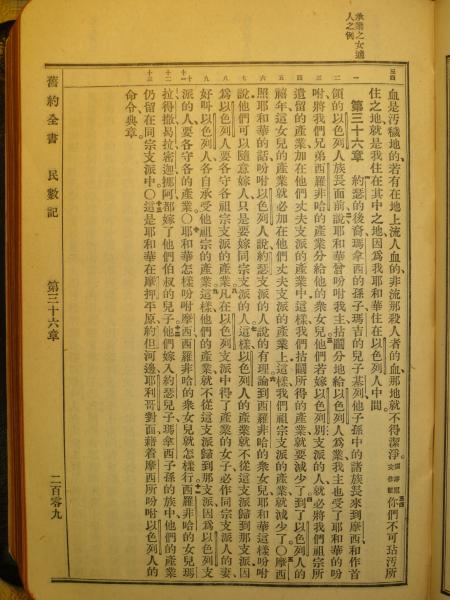 承業之女適
人之例
血是汚穢地的若有在地上流人血的非流那殺人者的血那地就不得潔淨你們不可玷汚所
住之地就是我住在其中之地因爲我耶和華住在以色列人中間。
第三十六章 約瑟的後裔瑪拿西的孫子瑪吉的兒子基列他子孫中的諸族長來到摩西和作首
領的以色列人族長面前說耶和華曾吩咐我主拈鬮分地給以色列人爲業我主也受了耶和華的吩
咐將我們兄弟西羅非哈的產業分給他的衆女兒他們若嫁以色列別支派的人就必將我們祖宗所
遺留的產業加在他們丈夫支派的產業中這樣我們拈鬮所得的產業就要減少了到了以色列人的
禧年這女兒的產業就必加在他們丈夫支派的產業上這樣我們祖宗支派的產業就減少了〇摩西
照耶和華的話吩咐以色列人說約瑟支派的人說的有理論到西羅非哈的衆女兒耶和華這樣吩咐
說他們可以隨意嫁人只是要嫁同宗支派的人這樣以色列人的產業就不從這支派歸到那支派因
爲以色列人要各守各祖宗支派的產業凡在以色列支派中得了產業的女子必作同宗支派人的妻
好叫以色列人各自承受他祖宗的產業這樣他們的產業就不從這支派歸到那支派因爲以色列支
派的人要各守各的產業〇耶和華怎樣吩咐摩西西羅非哈的衆女兒就怎樣行西羅非哈的女兒瑪
拉得撒曷拉密迦挪阿都嫁了他們伯叔的兒子他們嫁入約瑟兒子瑪拿西子孫的族中他們的產業
仍留在同宗支派中〇這是耶和華在摩押平原約但河邊耶利哥對面藉着摩西所吩咐以色列人的
命令典章。
舊約全書 民數記 第三十六章 二百零九